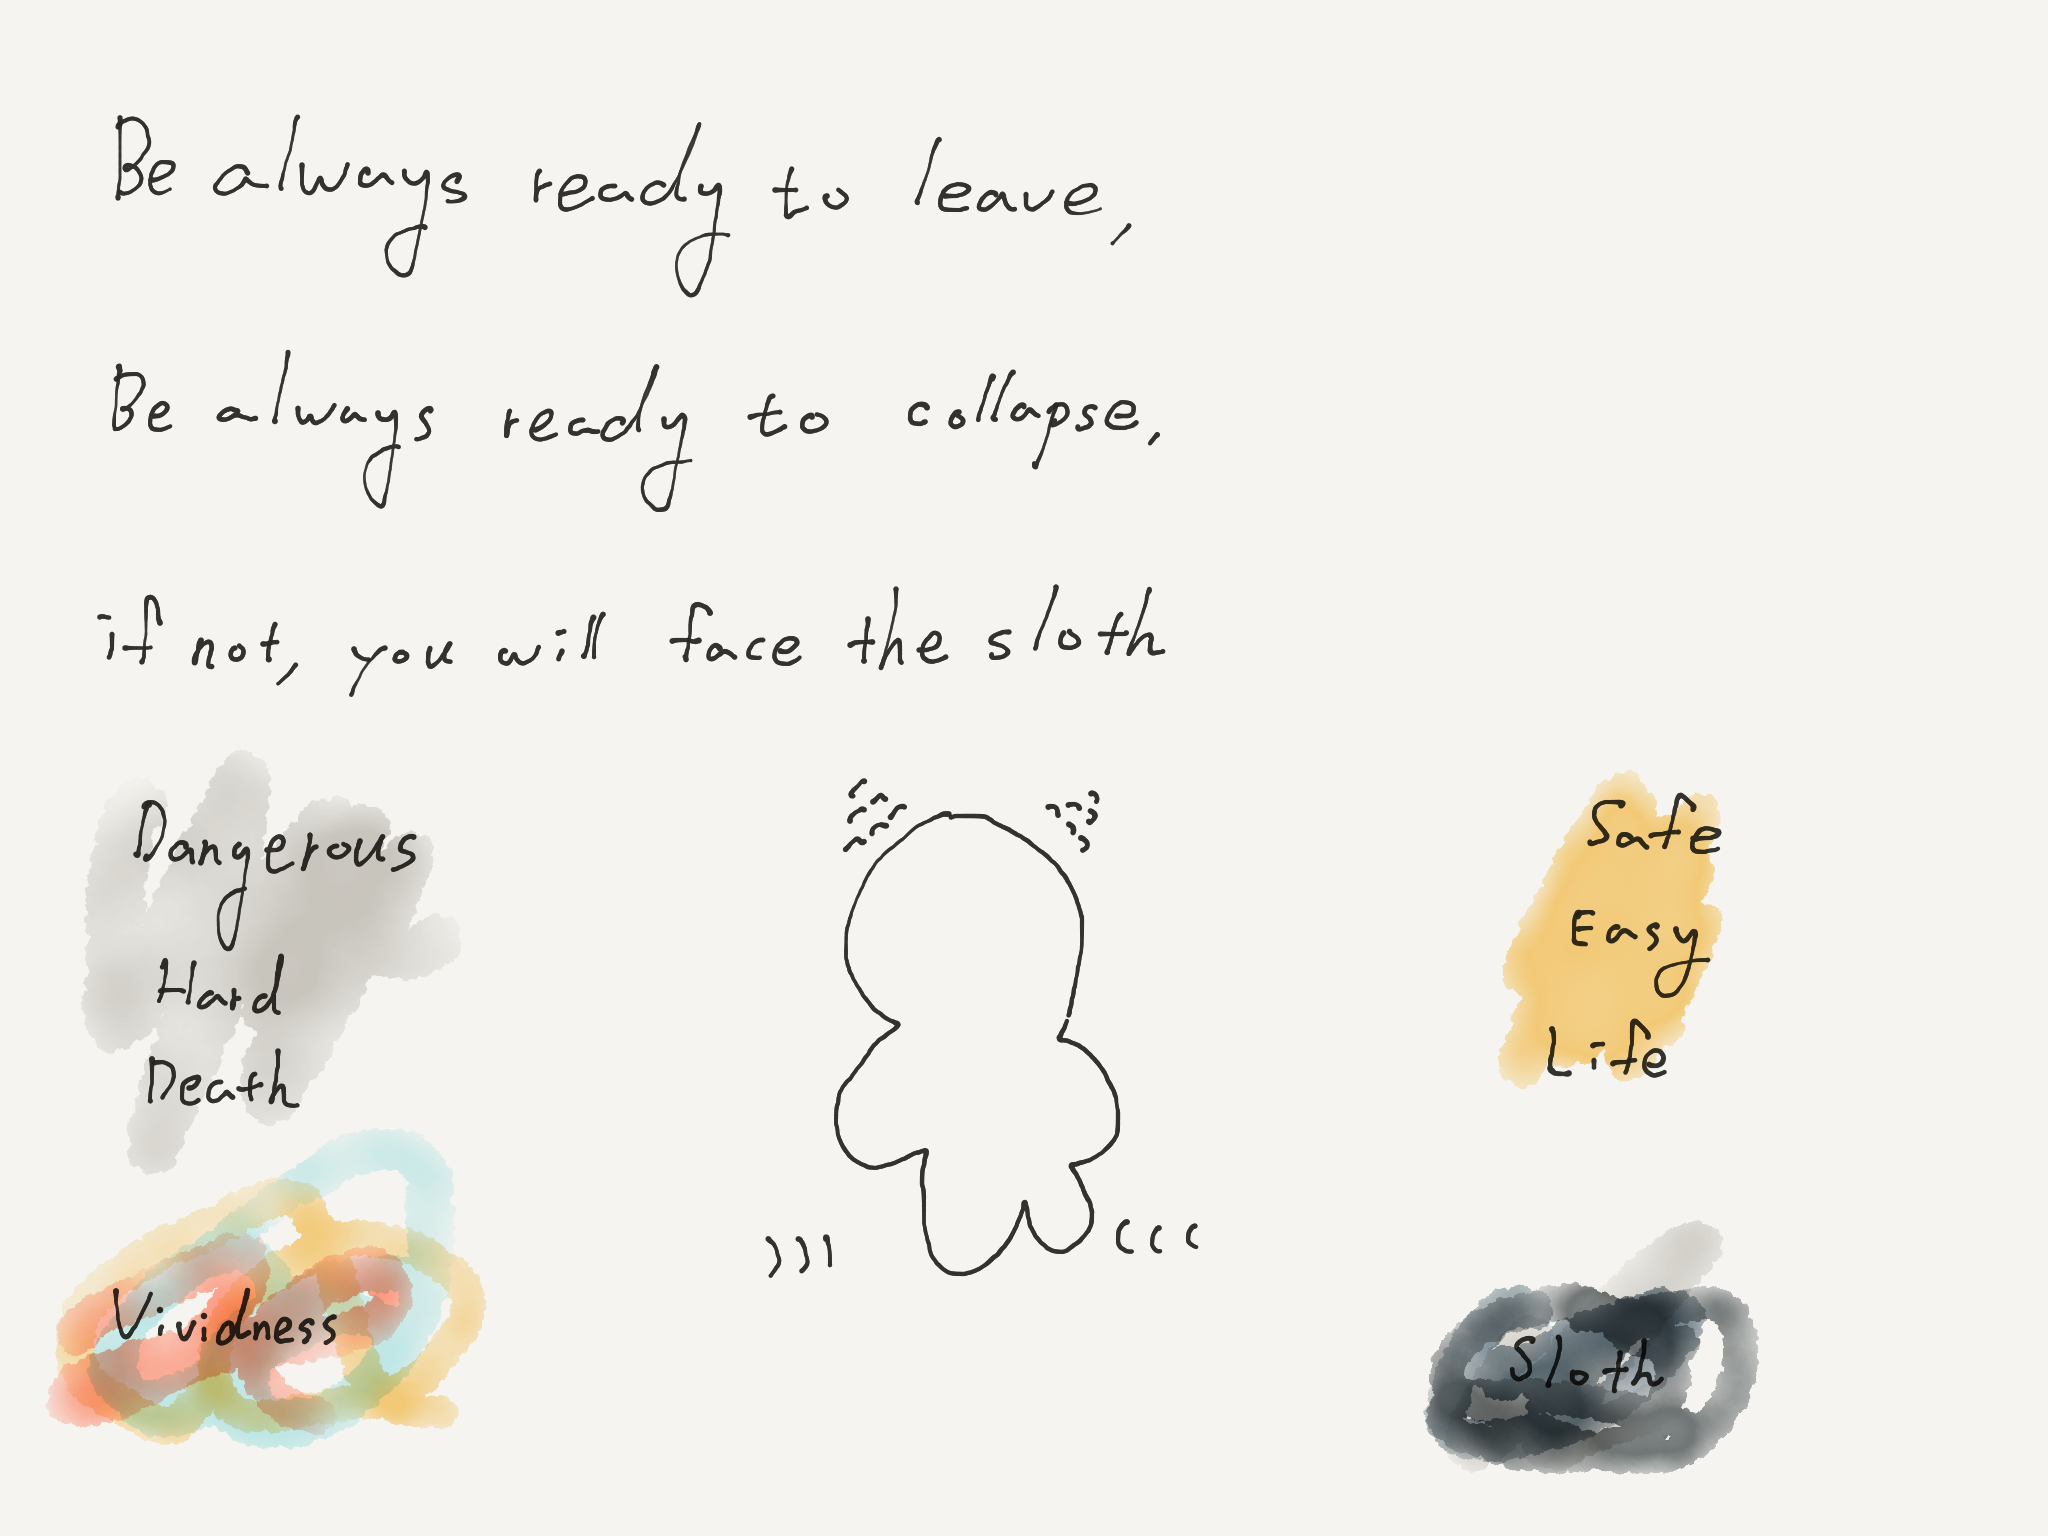 Be always ready to leave,
Be always ready to collapse,
if not, you will face the sloth
Dangerous
Hard
Death
Vividness
Safe
Easy
Life
Sloth